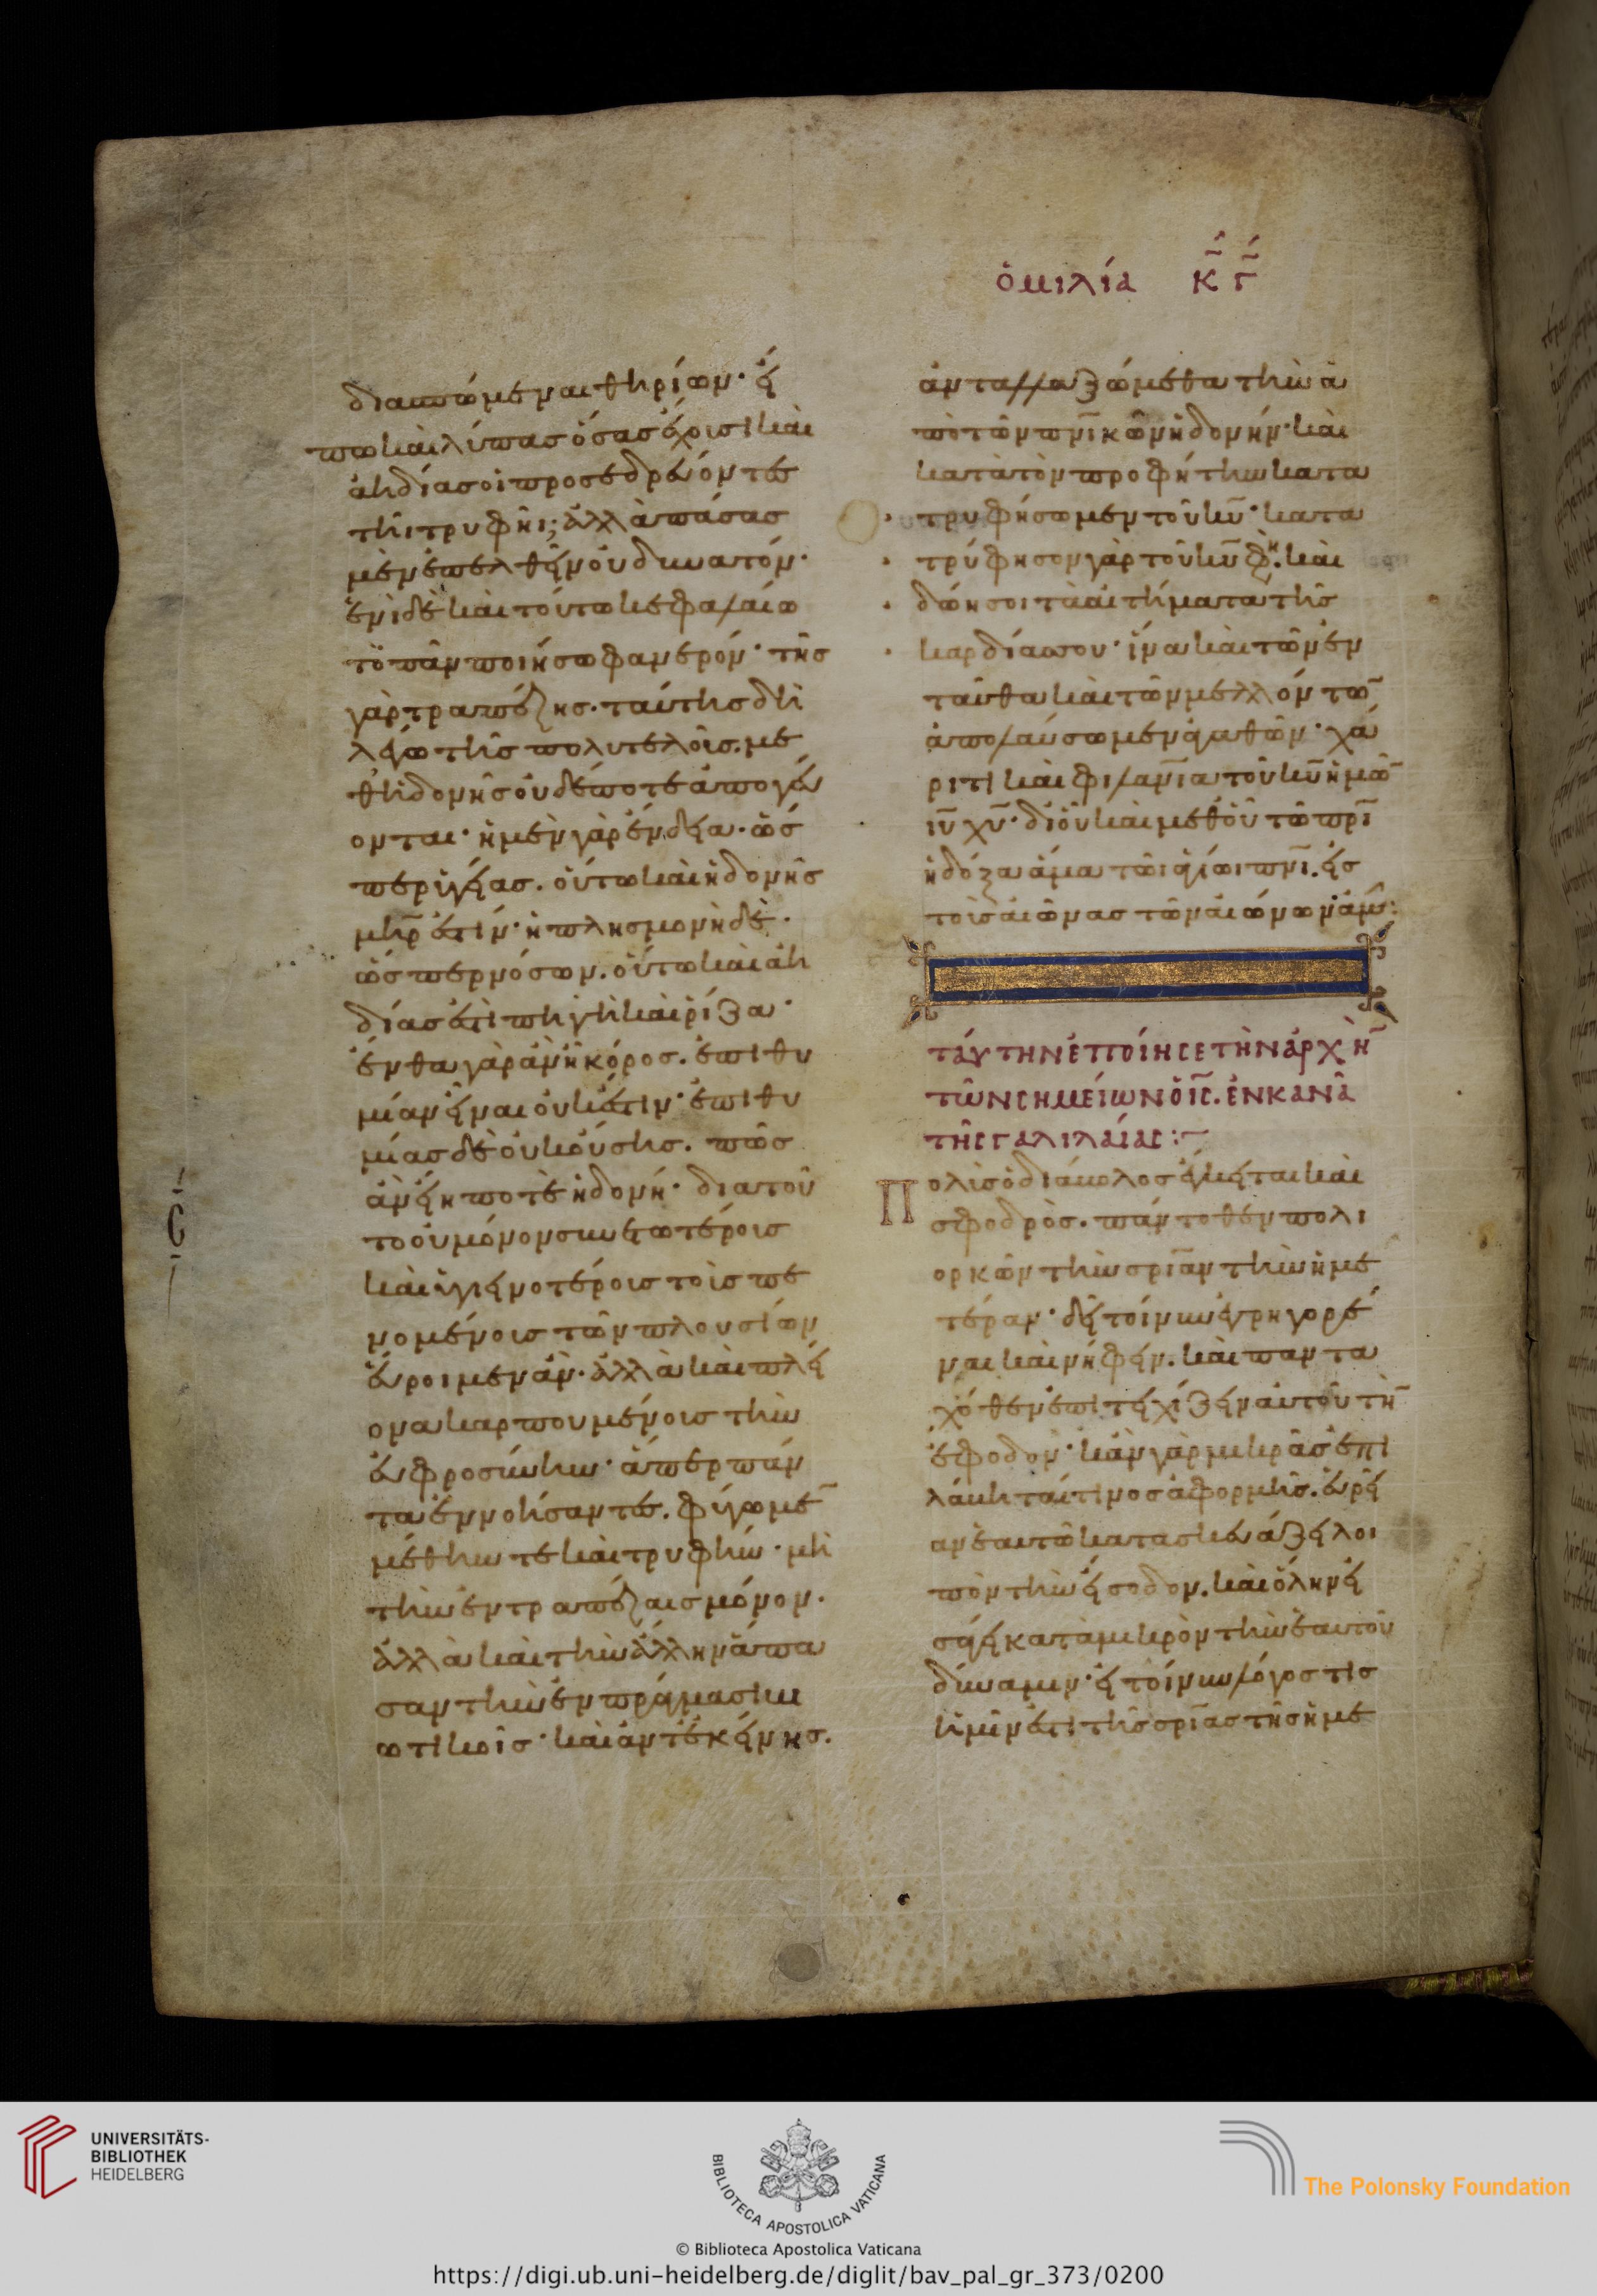 ὁμιλία κγ
διασπώμεναι θηρίων· εἴ
πω καὶ λύπας ὅσας ἔχουσι καὶ
ἀηδίας οἱ προσεδρεύοντες
τῆι τρυφῆι; ἀλλὰ πάσας
μὲν ἐπελθεῖν οὐ δυνατόν·
ἑνὶ δὲ καὶ τούτω κεφαλαίω
τὸ πᾶν ποιήσω φανερόν· τῆς
γὰρ τραπέζης· ταύτης δὴ
λέγω τῆς πολυτελοῦς. με
θ' ἡδονῆς οὐδέποτε ἀπογεύ
ονται· ἡ μὲν γὰρ ἔνδεια· ὥσ
περ ὑγείας. οὕτω καὶ ἡδονῆς
μηρ̅ ἐστίν· ἡ πλησμονὴ δὲ·
ὥσπερ νόσων. οὕτω καὶ ἀη
δίας ἐστὶ πηγὴ καὶ ῥίζα·
ἔνθα γὰρ ἂν ἦ κόρος. ἐπιθυ
μίαν εἶναι οὐκ ἔστιν· ἐπιθυ
μίας δὲ οὐκ οὔσης. πῶς
ἂν εἴη ποτὲ ἡδονή· διατοῦ
το οὐ μόνον συνετωτέροις
καὶ ὑγιεινοτέροις τοὺς πε
νομένοις τῶν πλουσίων
εὕροιμεν ἄν· ἀλλὰ καὶ πλεί
ονα καρπουμένοις τὴν
εὐφροσύνην· ἅπερ πάν
τα ἐννοήσαντες. φύγωμε̅
μέθην τε καὶ τρυφήν· μὴ
τὴν ἐν τραπέζαις μόνον·
ἀλλὰ καὶ τὴν ἄλλην ἅπα
σαν τὴν ἐν πράγμασι βι
ωτικοῖς· καὶ ἀντ' ἐκείνης.
ἀνταλλαξώμεθα τὴν ἀ
πὸ τῶν πν̅ικῶν ἡδονήν· καὶ
κατὰ τὸν προφήτην κατα
τρυφήσωμεν τοῦ κυ̅· κατα
τρύφησον γὰρ τοῦ κυ̅ φη. καὶ
δώη σοι τὰ αἰτήματα τῆς
καρδίας σου· ἵνα καὶ τῶν ἐν
ταῦθα καὶ τῶν μελλόντω̅
ἀπολαύσωμεν ἀγαθῶν· χά
ριτι καὶ φιλαν̅ια τοῦ κυ̅ ἡμῶ̅
ιυ̅ χυ̅· δι' οὗ καὶ μεθ' οὗ τῶ πρι̅
ἡ δόξα ἅμα τῶι ἁγίωι πνι̅. εἰς
τοὺς αἰῶνας τῶν αἰώνων ἀμή̅ν:
ταύτην ἐποίησε τὴν ἀρχὴ̅
τῶν σημείων ὁ ισ̅. ἐν κανᾶ
τῆς γαλιλαίας:
Πολὺς ὁ διάβολος ἔγκειται καὶ
σφοδρὸς. πάντοθεν πολι
ορκῶν τὴν σρι̅αν τὴν ἡμε
τέραν· δεῖ τοίνυν ἐγρηγορέ
ναι καὶ νήφειν. καὶ παντα
χόθεν ἐπιτειχίζειν αὐτοῦ τὴ̅
ἔφοδον· κἂν γὰρ μικρᾶς ἐπι
λάβηταί τινος ἀφορμῆς. εὐρεῖ
αν ἑαυτῶ κατασκευάζει λοι
πὸν τὴν εἴσοδον. καὶ ὅλην εἰ
σάγει κατὰ μικρὸν τὴν ἑαυτοῦ
δύναμιν· εἰ τοίνυν λόγος τις
ἡμῖν ἐστὶ τῆς σρι̅ας τῆς ἡμε
UNIVERSITÄTS-
BIBLIOTHEK
HEIDELBERG
BIBLIOTECA APOSTOLICA VATICANA
© Biblioteca Apostolica Vaticana
The Polonsky Foundation
https://digi.ub.uni-heidelberg.de/diglit/bav_pal_gr_373/0200